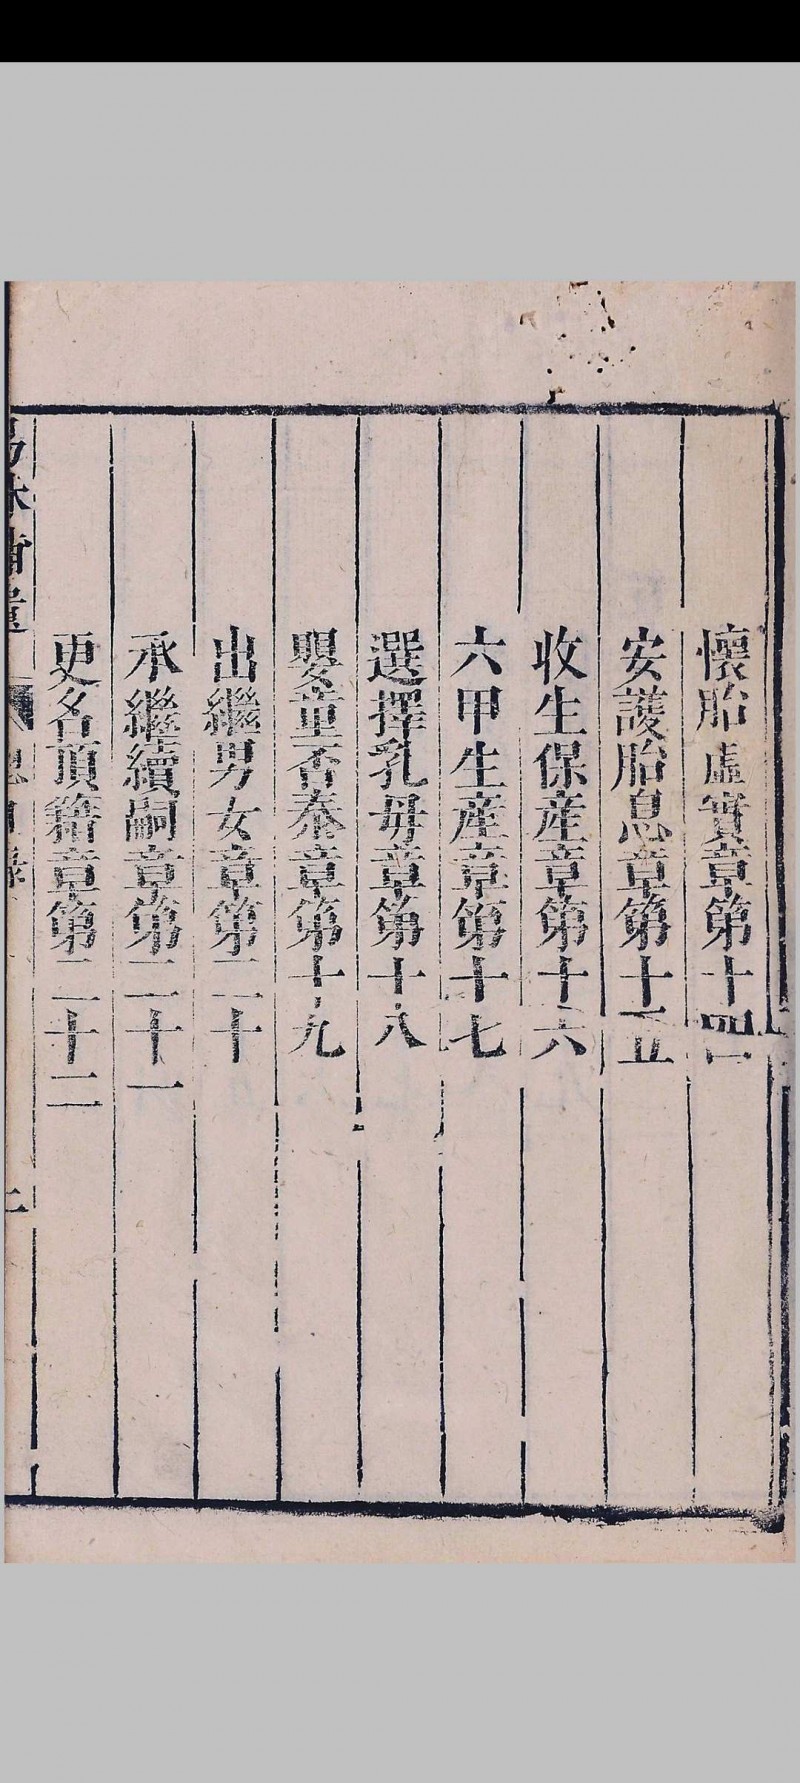 懷胎虛實章第十四
安護胎息章第十五
收生保産章第十六
六甲生産章第十七
選擇乳母章第十八
嬰童否泰章第十九
出繼男女章第二十
承繼續嗣章第二十一
更名頂籍章第二十二